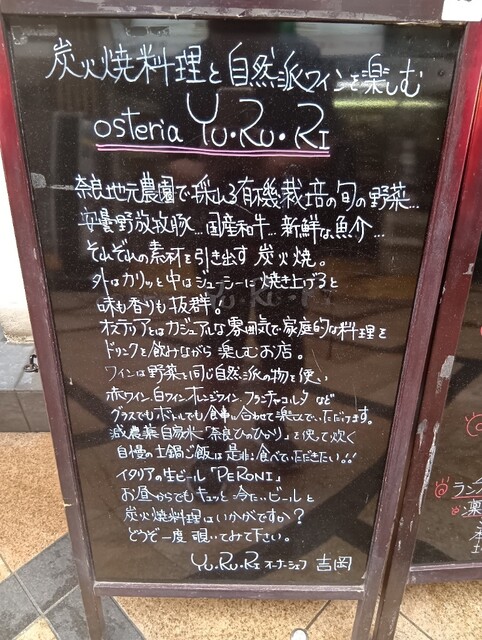 炭火焼料理と自然派ワインを楽しむ
osteria YU・RU・RI
奈良地元農園で採れる有機栽培の旬の野菜…
安曇野放牧豚…国産和牛…新鮮な魚介…
それぞれの素材を引き出す炭火焼。
外はカリッと中はジューシーに焼き上げると
味も香りも抜群。
オステリアとはカジュアルな雰囲気で家庭的な料理を
ドリンクと飲みながら楽しむお店。
ワインは野菜と同じ自然派の物を使い
赤ワイン、白ワイン、オレンジワイン、フランチャコルタなど
グラスでもボトルでも食事に合わせて楽しんでいただけます。
減農薬自家米「奈良ひのひかり」を使って炊く
自慢の土鍋ご飯は是非食べていただきたい!!
イタリアの生ビール「PERONI」
お昼からでもキュッと冷たいビールと
炭火焼料理はいかがですか?
どうぞ一度覗いてみて下さい。
YU.RU.RI オーナーシェフ 吉岡
ラン